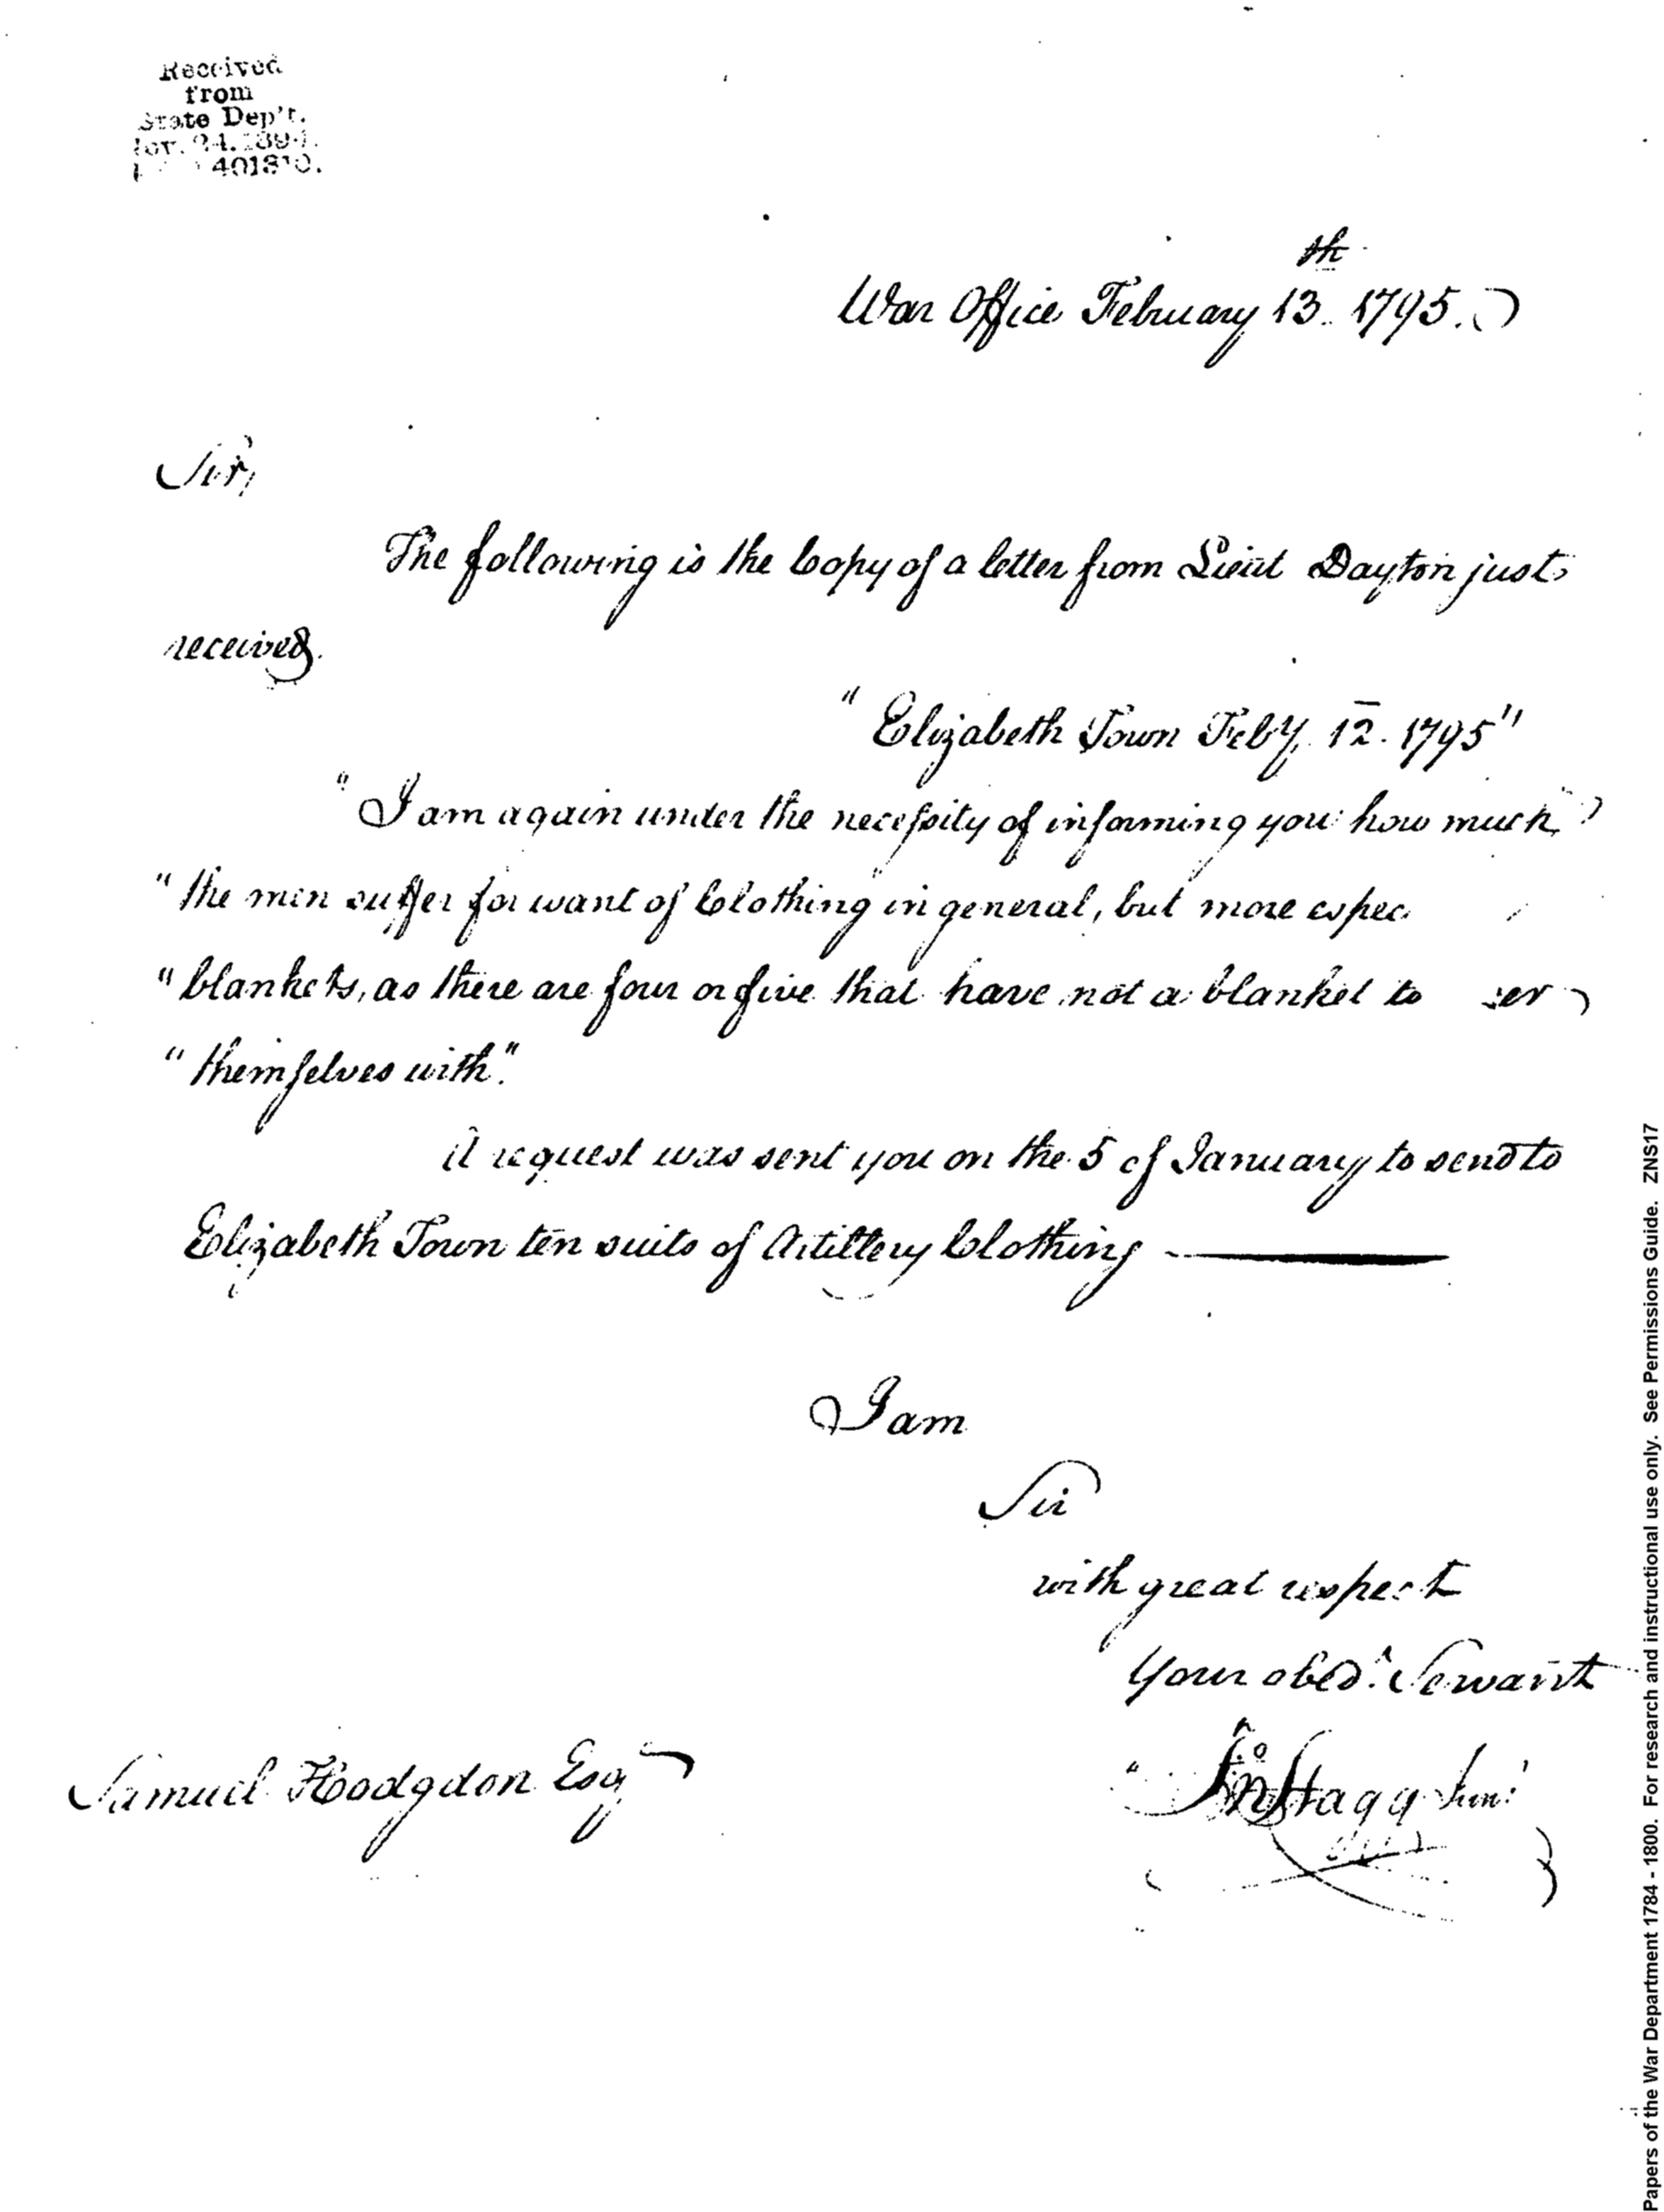 Received
from
State Dep't.
Nov. 24. 1894.
401810.
War Office February 13th 1795.
Sir,
The following is the Copy of a letter from Lieut Dayton just
received.
" Elizabeth Town Feby. 12. 1795"
" I am again under the necessity of informing you how much
" the men suffer for want of Clothing in general, but more espec
" blankets, as there are four or five that have not a blanket to er
" themselves with."
A request was sent you on the 5 of January to send to
Elizabeth Town ten suits of Artillery Clothing —
I am
Sir
with great respect
Your obedt. Servant
Jno Stagg Junr
Samuel Hodgdon Esqr
Papers of the War Department 1784 - 1800. For research and instructional use only. See Permissions Guide. ZNS17